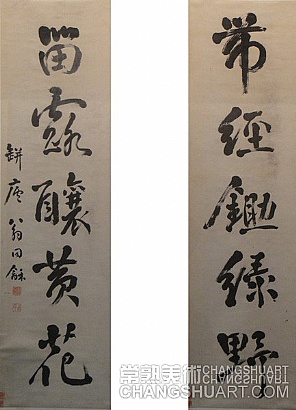 帶經鋤綠野
留露釀黄花
缾廬翁同龢
常熟美術 CHANGSHUART
CHANGSHUART.COM